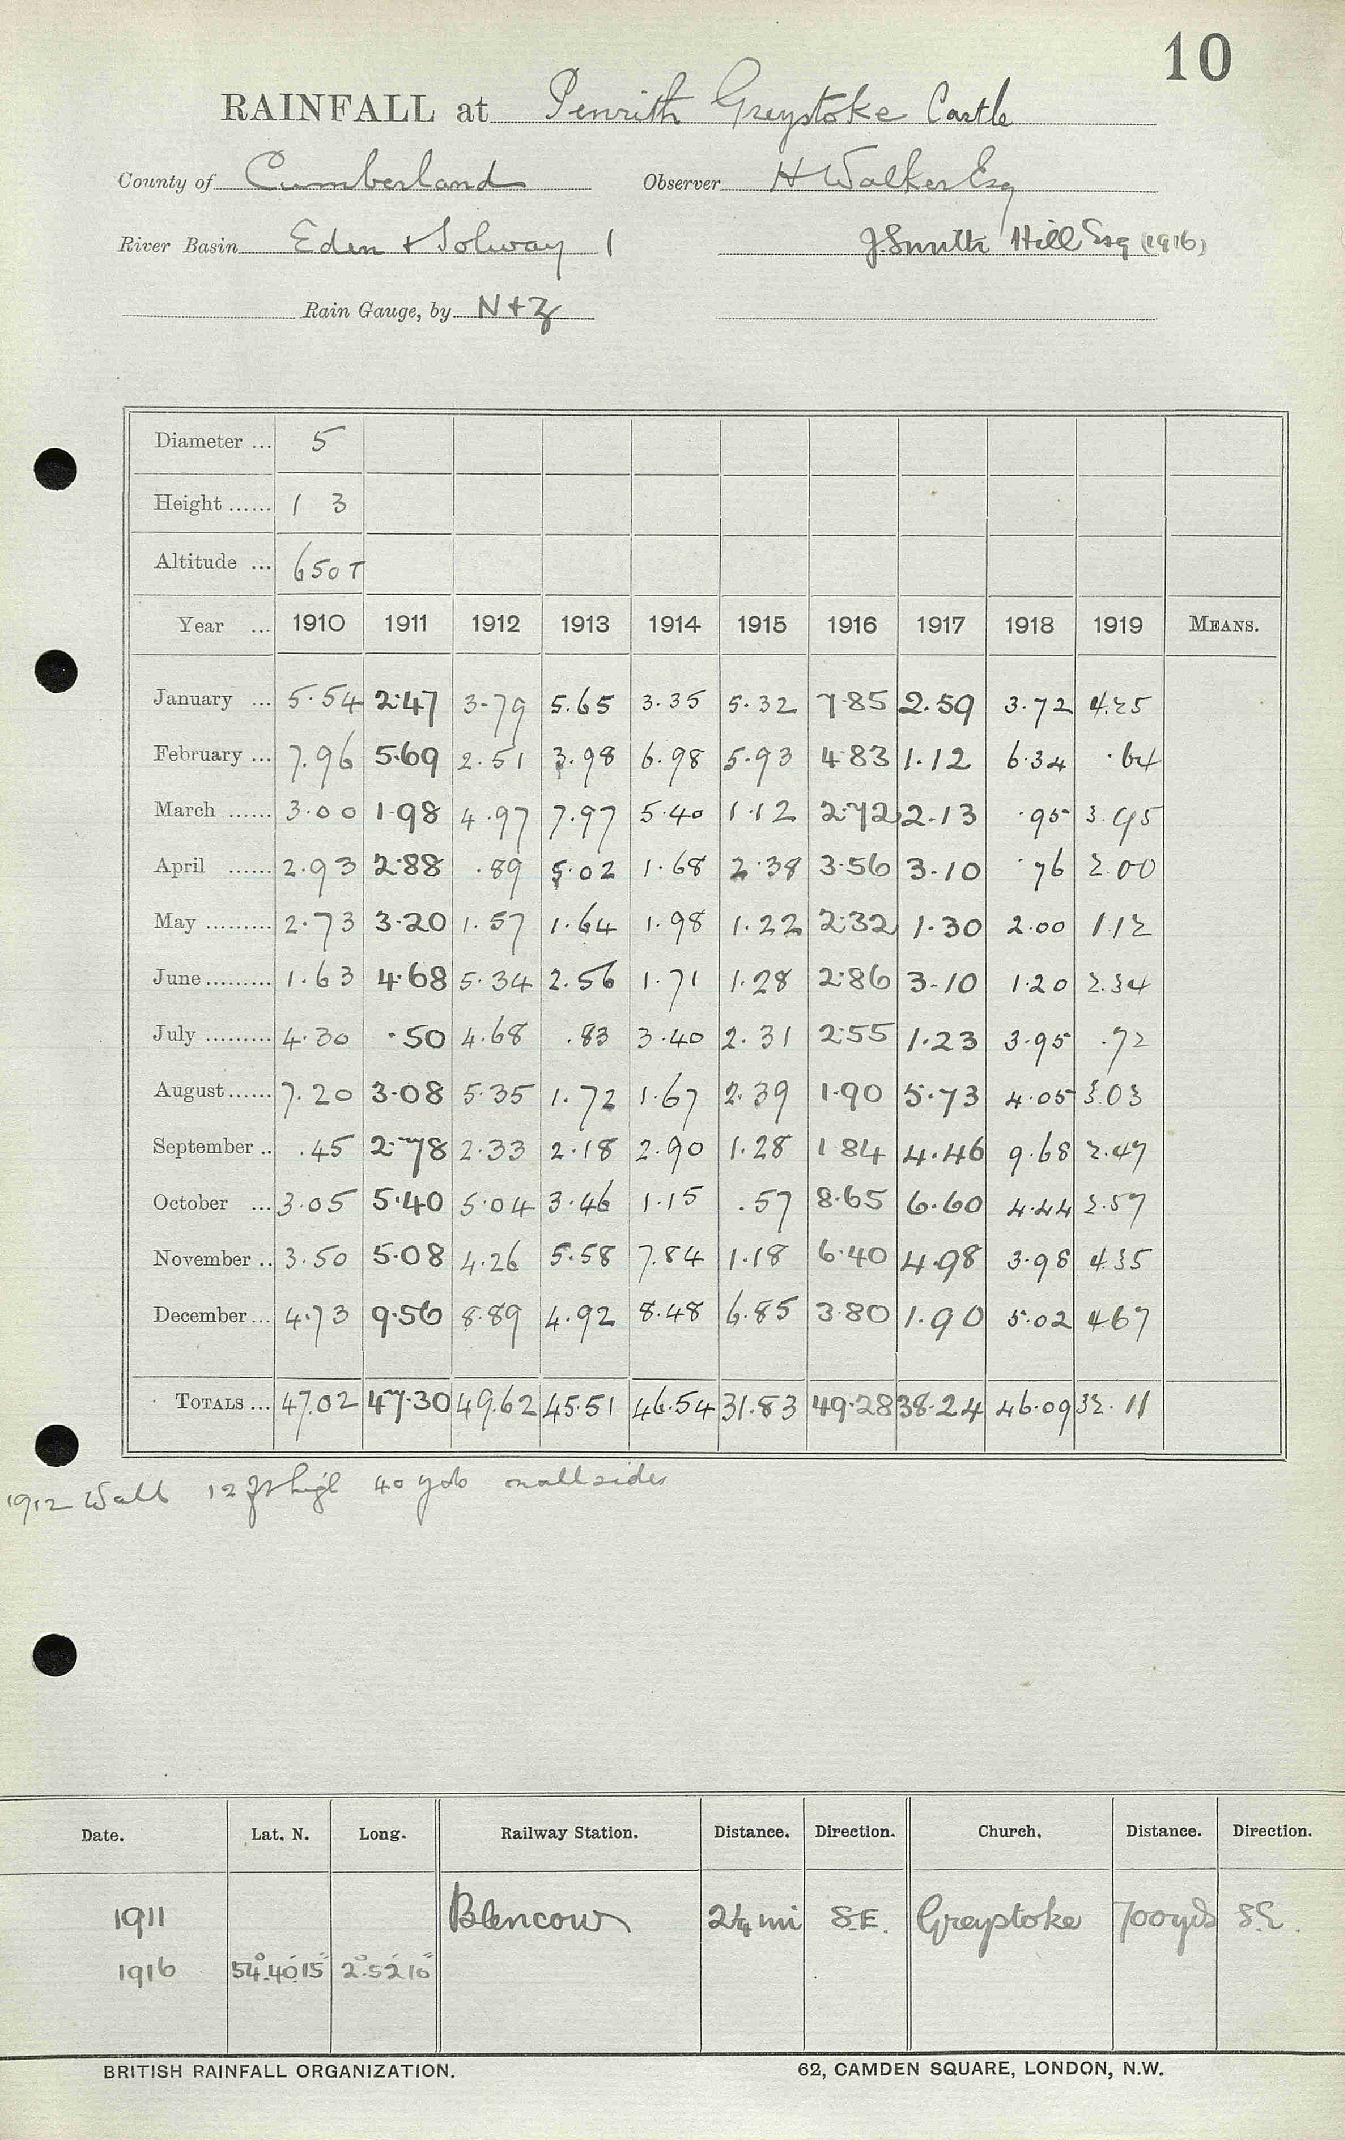 10
RAINFALL at Penrith Greystoke Castle
County of Cumberland Observer H Walker Esq
River Basin Eden + Solway 1 J. Smith Hill Esq (1916)
Rain Gauge, by N + Z
Diameter ... 5
Height ...... 1 3
Altitude ... 650 T
Year ... 1910 1911 1912 1913 1914 1915 1916 1917 1918 1919 MEANS.
January ... 5.54 2.47 3.79 5.65 3.35 5.32 7.85 2.59 3.72 4.25
February ... 7.96 5.69 2.51 3.98 6.98 5.93 4.83 1.12 6.34 .64
March ...... 3.00 1.98 4.97 7.97 5.40 1.12 2.72 2.13 .95 3.95
April ...... 2.93 2.88 .89 5.02 1.68 2.38 3.56 3.10 .76 2.00
May ......... 2.73 3.20 1.57 1.64 1.98 1.22 2.32 1.30 2.00 1.12
June ......... 1.63 4.68 5.34 2.56 1.71 1.28 2.86 3.10 1.20 2.34
July ......... 4.30 .50 4.68 .83 3.40 2.31 2.55 1.23 3.95 .72
August ...... 7.20 3.08 5.35 1.72 1.67 2.39 1.90 5.73 4.05 3.03
September .. .45 2.78 2.33 2.18 2.90 1.28 1 84 4.46 9.68 2.47
October ... 3.05 5.40 5.04 3.46 1.15 .57 8.65 6.60 4.44 2.57
November .. 3.50 5.08 4.26 5.58 7.84 1.18 6.40 4.98 3.98 4.35
December ... 4.73 9.56 8.89 4.92 8.48 6.85 3.80 1.90 5.02 4 67
TOTALS ... 47.02 47.30 49.62 45.51 46.54 31.83 49.28 38.24 46.09 32.11
1912 Wall 12 ft high 40 yds on all sides
Date. Lat. N. Long. Railway Station. Distance. Direction. Church. Distance. Direction.
1911 Blencow 2¼ mi S.E. Greystoke 700 yds S.E.
1916 54°.40'.15" 2°.52'.10"
BRITISH RAINFALL ORGANIZATION. 62, CAMDEN SQUARE, LONDON, N.W.